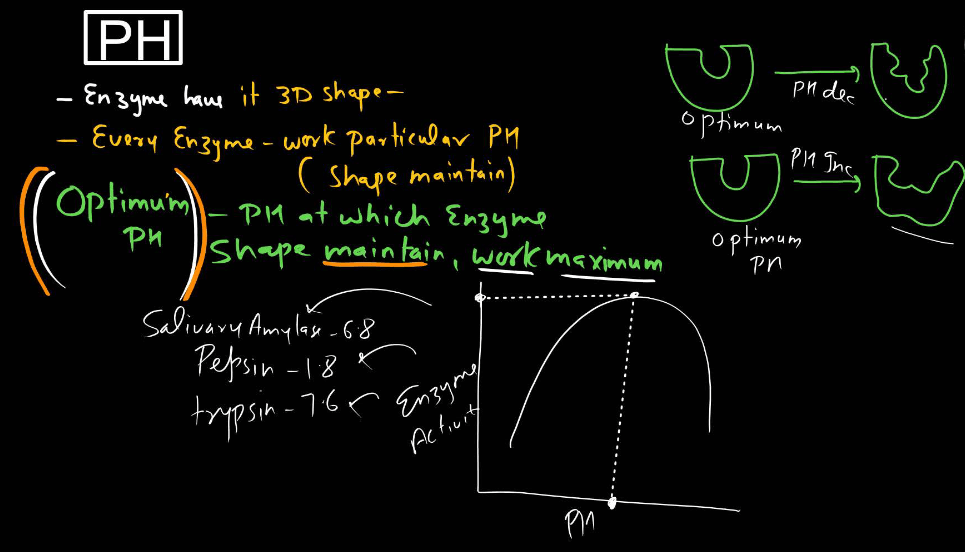 PH
- Enzyme have it 3D shape -
- Every Enzyme - work particular PH
( Shape maintain)
Optimum
PH
- PH at which Enzyme
Shape maintain, work maximum
Salivary Amylase - 6.8
Pepsin - 1.8
trypsin - 7.6
Enzyme
Activit
PH
Optimum
PH dec
Optimum
PH
PH Inc